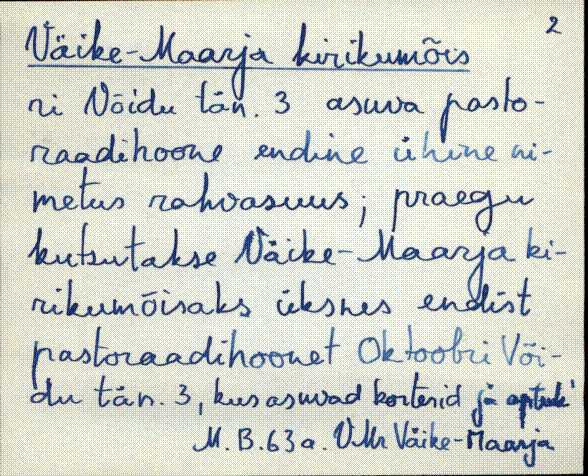 2
Väike-Maarja kirikumõis
ri Võidu tän. 3 asuva pasto-
raadihoone endine ühine ni-
metus rahvasuus; praegu
kutsutakse Väike-Maarja ki-
rikumõisaks üksnes endist
pastoraadihoonet Oktoobri Või-
du tän. 3, kus asuvad korterid ja
M. B. 63 a. VMr Väike-Maarja